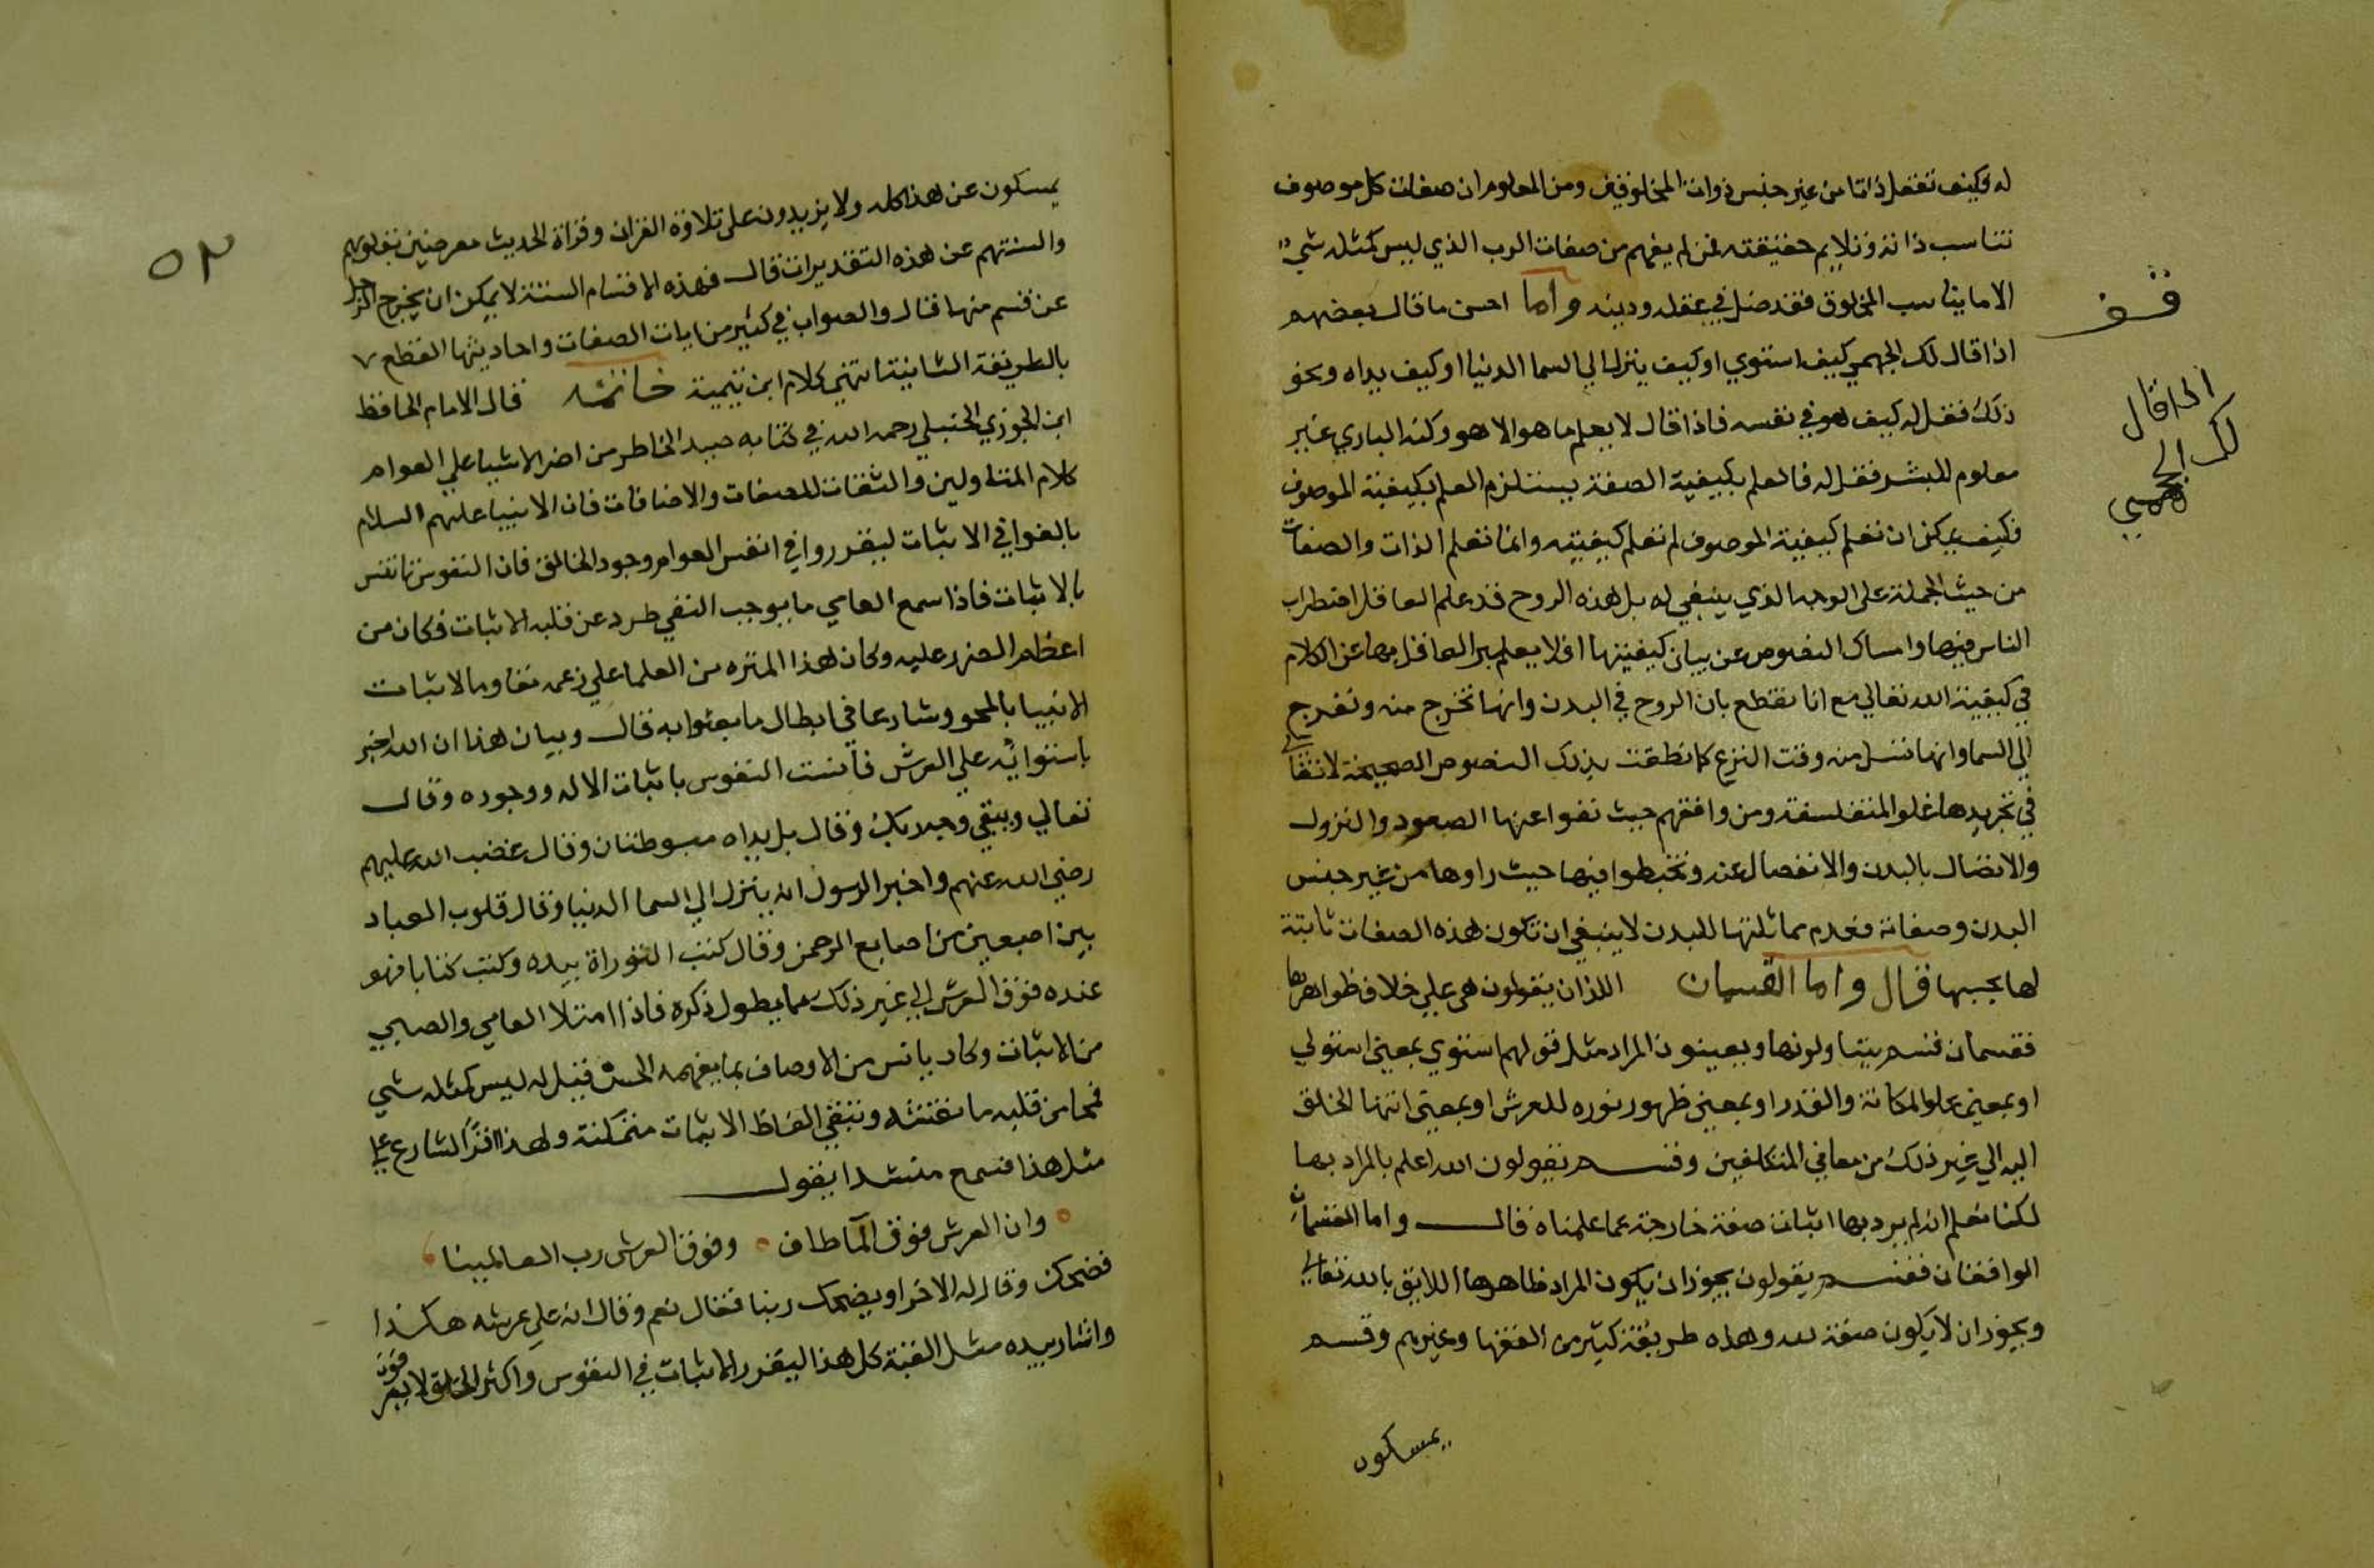 له وكيف تعقل ذاتا من غير جنس ذوات المخلوقين ومن المعلوم ان صفات كل موصوف
تناسب ذاته وتلايم حقيقته فمن لم يفهم من صفات الرب الذي ليس كمثله شيء
الا ما يناسب المخلوق فقد ضل في عقله ودينه وأما احسن ما قال بعضهم
اذا قال لك الجهمي كيف استوي او كيف ينزل الي السما الدنيا او كيف يداه ونحو
ذلك فقل له كيف هو في نفسه فاذا قال لا يعلم ما هو الا هو وكنه الباري غير
معلوم للبشر فقل له فالعلم بكيفية الصفة يستلزم العلم بكيفية الموصوف
فكيف يمكن ان تعلم كيفية الموصوف لم تعلم كيفيته وانما تعلم الذات والصفات
من حيث الجملة علي الوجه الذي ينبغي له بل هذه الروح قد علم العاقل اضطراب
الناس فيها وامساك النصوص عن بيان كيفيتها افلا يعتبر العاقل بها عن الكلام
في كيفية الله تعالي مع انا نقطع بان الروح في البدن وانها تخرج منه وتعرج
الي السما وانها تسل منه وقت النزع كما نطقت بذلك النصوص الصحيحة لا نتغالي
في تجريدها غلو المتفلسفة ومن وافقهم حيث نفوا عنها الصعود والنزول
والاتصال بالبدن والانفصال عنه وتخبطوا فيها حيث راوها من غير جنس
البدن وصفاته فعدم مماثلتها للبدن لا ينبغي ان تكون هذه الصفات ثابتة
لها بحسبها قال واما القسمان اللذان يقولون هي علي خلاف ظواهرها
فقسمان قسم يتاولونها ويعينون المراد مثل قولهم استوي بمعني استولي
او بمعني علو المكانة والقدر او بمعني ظهور نوره للعرش او بمعني انتها الخلق
اليه الي غير ذلك من معاني المتكلفين وقسم يقولون الله اعلم بالمراد بها
لكنا نعلم انه لم يرد بها اثبات صفة خارجة عما علمناه قال واما القسمان
الواقفان فقسم يقولون يجوز ان يكون المراد ظاهرها اللايق بالله تعالي
ويجوز ان لا يكون صفة لله وهذه طريقة كثير من الفقها وغيرهم وقسم
يمسكون
قف
اذا قال
لك الجهمي
٥٢
يمسكون عن هذا كله ولا يزيدون علي تلاوة القران وقراة الحديث معرضين بقلوبهم
والسنتهم عن هذه التقديرات قال فهذه الاقسام الستة لا يمكن ان يخرج الرجل
عن قسم منها قال والصواب في كثير من ايات الصفات واحاديثها القطع
بالطريقة الثابتة انتهي كلام ابن تيمية خاتمة قال الامام الحافظ
ابن الجوزي الحنبلي رحمه الله في كتابه صيد الخاطر من اضر الاشيا علي العوام
كلام المتاولين والنفات للصفات والاضافات فان الانبيا عليهم السلام
بالغوا في الاثبات ليقرروا في انفس العوام وجود الخالق فان النفوس تانس
بالاثبات فاذا سمع العامي ما يوجب النفي طرد عن قلبه الاثبات فكان من
اعظم الضرر عليه وكان هذا المنزه من العلما علي زعمه مقاوما لاثبات
الانبيا بالمحو وشارعا في ابطال ما بعثوا به قال وبيان هذا ان الله اخبر
باستوائه علي العرش فأنست النفوس باثبات الاله ووجوده وقال
تعالي ويبقي وجه ربك وقال بل يداه مبسوطتان وقال غضب الله عليهم
رضي الله عنهم واخبر الرسول انه ينزل الي السما الدنيا وقال قلوب العباد
بين اصبعين من اصابع الرحمن وقال كتب التوراة بيده وكتب كتابا فهو
عنده فوق العرش الي غير ذلك مما يطول ذكره فاذا امتلا العامي والصبي
من الاثبات وكاد يانس من الاوصاف بما يفهمه الحس قيل له ليس كمثله شي
فمحا من قلبه ما نقشه وتبقي الفاظ الاثبات متمكنة ولهذا اقر الشارع علي
مثل هذا فسمع منشدا يقول
وان العرش فوق المآ طاف وفوق العرش رب العالمينا
فضحك وقال له الاخر او يضحك ربنا فقال نعم وقال انه علي عرشه هكذا
واشار بيده مثل القبة كل هذا ليقرر الاثبات في النفوس واكثر الخلق لا يعرفون